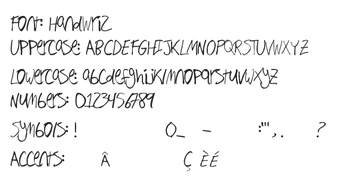 Font: Handwriz
Uppercase: ABCDEFGHIJKLMNOPQRSTUVWXYZ
Lowercase: abcdefghijklmnopqrstuvwxyz
Numbers: 0123456789
Symbols: ! ()_ - :"', . ?
Accents: Â Ç È É